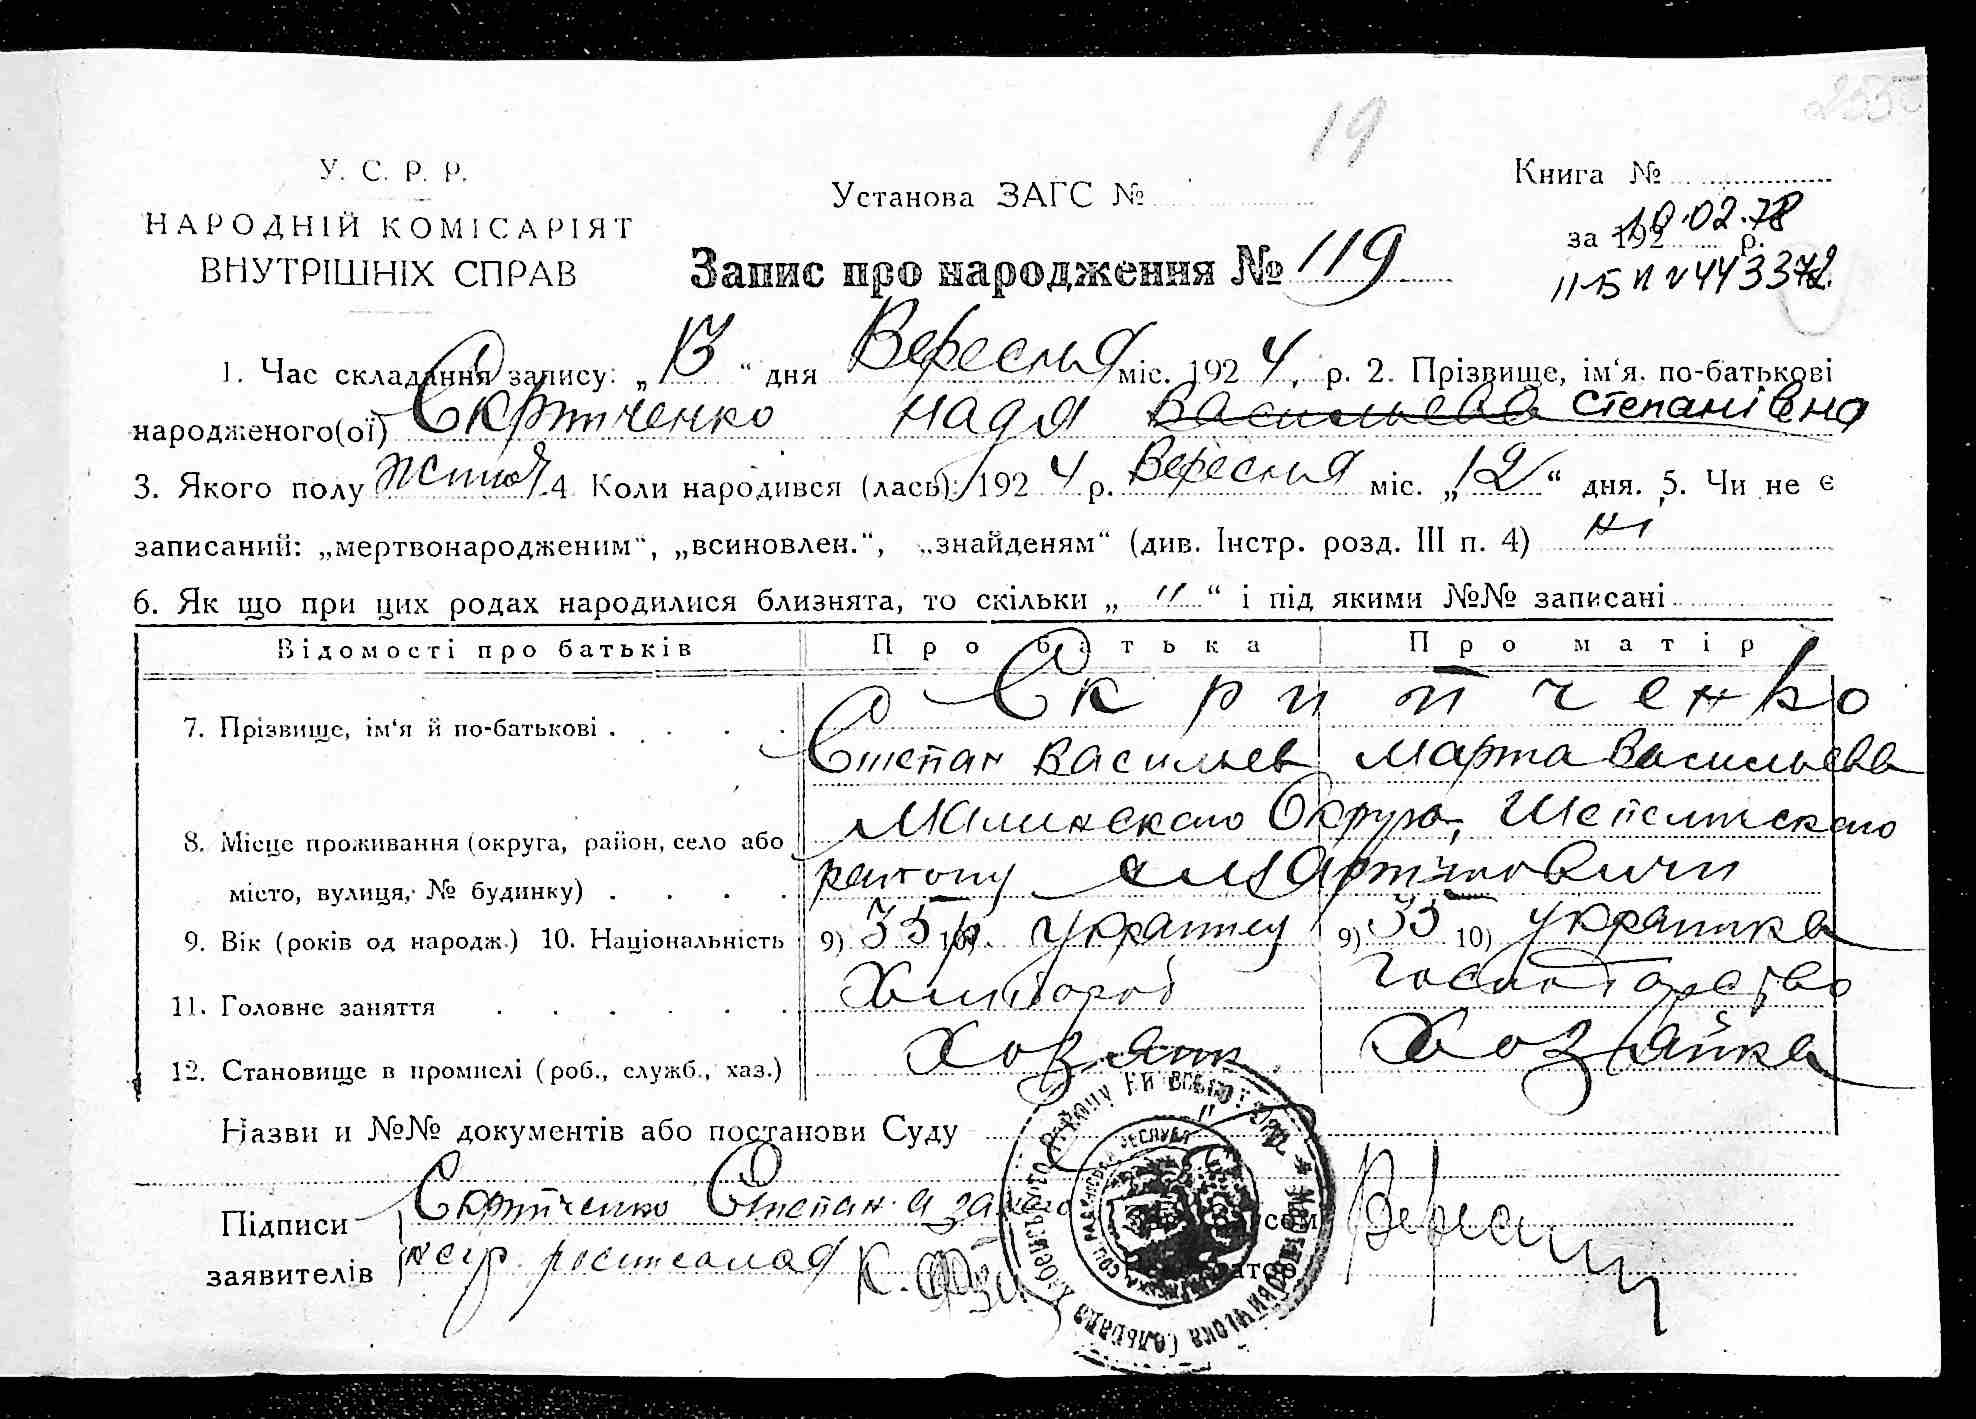 19
У. С. Р. Р.
НАРОДНІЙ КОМІСАРІЯТ
ВНУТРІШНІХ СПРАВ
Установа ЗАГС №
Книга №
за 192 р.
10.02.78
Запис про народження № 119
1. Час складання запису: „13“ дня Вересня міс. 1924 р. 2. Прізвище, ім'я, по-батькові
народженого(ої) Скрипченко Надя Васильева Степанівна
3. Якого полу 4. Коли народився (лась): 1924 р. Вересня міс. „12“ дня. 5. Чи не є
записаний: „мертвонародженим“, „всиновлен.“, „знайденям“ (див. Інстр. розд. III п. 4) ні
6. Як що при цих родах народилися близнята, то скільки „ “ і під якими №№ записані
Відомості про батьків Про батька Про матір
7. Прізвище, ім'я й по-батькові . . . . Скрипченко
Степан Васильев Марта Васильева
8. Місце проживання (округа, район, село або Малинского Округа,
місто, вулиця, № будинку) . . . .
9. Вік (років од народж.) 10. Національність 9) 35 10) Украинец 9) 35 10) Украинка
11. Головне заняття . . . . . . Хлибороб господарство
12. Становище в промислі (роб., служб., хаз.) Хозяин Хозяйка
Назви и №№ документів або постанови Суду
Підписи Скрипченко Степан а за него
заявителів росписалася